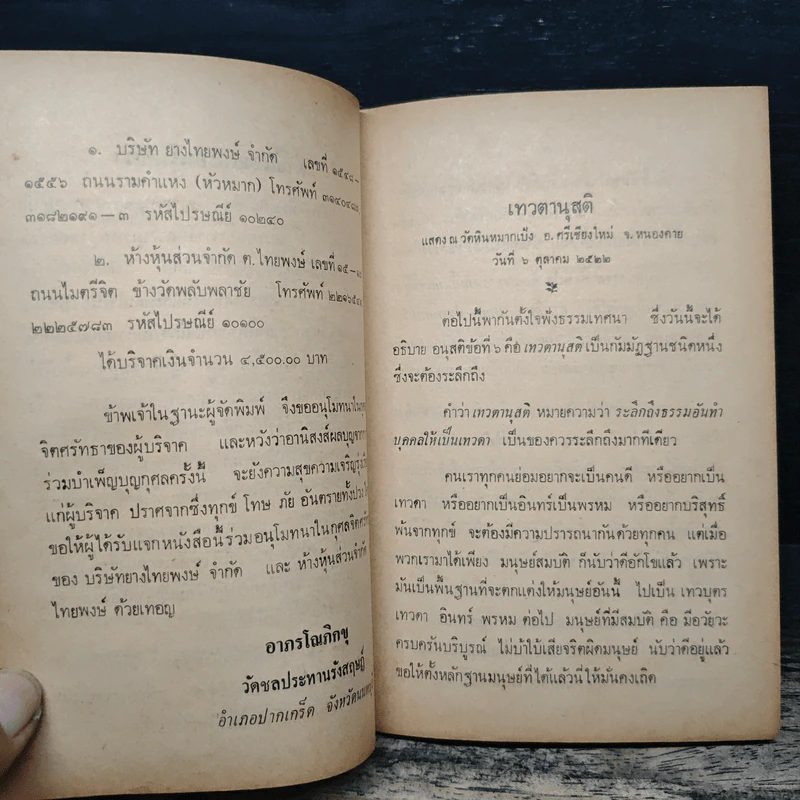 ๑. บริษัท ยางไทยพงษ์ จำกัด เลขที่ ๑๕๔๘–
๑๕๕๖ ถนนรามคำแหง (หัวหมาก) โทรศัพท์
๓๑๘๒๑๙๑–๓ รหัสไปรษณีย์ ๑๐๒๔๐
๒. ห้างหุ้นส่วนจำกัด ต.ไทยพงษ์ เลขที่ ๑๕–
ถนนไมตรีจิต ข้างวัดพลับพลาชัย โทรศัพท์
๒๒๒๕๗๘๓ รหัสไปรษณีย์ ๑๐๑๐๐
ได้บริจาคเงินจำนวน ๔,๕๐๐.๐๐ บาท
ข้าพเจ้าในฐานะผู้จัดพิมพ์ จึงขออนุโมทนาใน
จิตศรัทธาของผู้บริจาค และหวังว่าอานิสงส์ผลบุญ
ร่วมบำเพ็ญบุญกุศลครั้งนี้ จะยังความสุขความเจริญ
แก่ผู้บริจาค ปราศจากซึ่งทุกข์ โทษ ภัย อันตรายทั้งปวง
ขอให้ผู้ได้รับแจกหนังสือนี้ร่วมอนุโมทนาในกุศลจิต
ของ บริษัทยางไทยพงษ์ จำกัด และ ห้างหุ้นส่วนจำกัด
ไทยพงษ์ ด้วยเทอญ
อาภรโณภิกขุ
วัดชลประทานรังสฤษฎ์
อำเภอปากเกร็ด จังหวัด
เทวตานุสติ
แสดง ณ วัดหินหมากเป้ง อ. ศรีเชียงใหม่ จ. หนองคาย
วันที่ ๖ ตุลาคม ๒๕๒๒
ต่อไปนี้พากันตั้งใจฟังธรรมเทศนา ซึ่งวันนี้จะได้
อธิบาย อนุสติข้อที่ ๖ คือ เทวตานุสติ เป็นกัมมัฏฐานชนิดหนึ่ง
ซึ่งจะต้องระลึกถึง
คำว่า เทวตานุสติ หมายความว่า ระลึกถึงธรรมอันทำ
บุคคลให้เป็นเทวดา เป็นของควรระลึกถึงมากทีเดียว
คนเราทุกคนย่อมอยากจะเป็นคนดี หรืออยากเป็น
เทวดา หรืออยากเป็นอินทร์เป็นพรหม หรืออยากบริสุทธิ์
พ้นจากทุกข์ จะต้องมีความปรารถนากันด้วยทุกคน แต่เมื่อ
พวกเรามาได้เพียง มนุษย์สมบัติ ก็นับว่าดีอักโขแล้ว เพราะ
มันเป็นพื้นฐานที่จะตกแต่งให้มนุษย์อันนี้ ไปเป็น เทวบุตร
เทวดา อินทร์ พรหม ต่อไป มนุษย์ที่มีสมบัติ คือ มีอวัยวะ
ครบครันบริบูรณ์ ไม่บ้าใบ้เสียจริตผิดมนุษย์ นับว่าดีอยู่แล้ว
ขอให้ตั้งหลักฐานมนุษย์ที่ได้แล้วนี้ให้มั่นคงเถิด